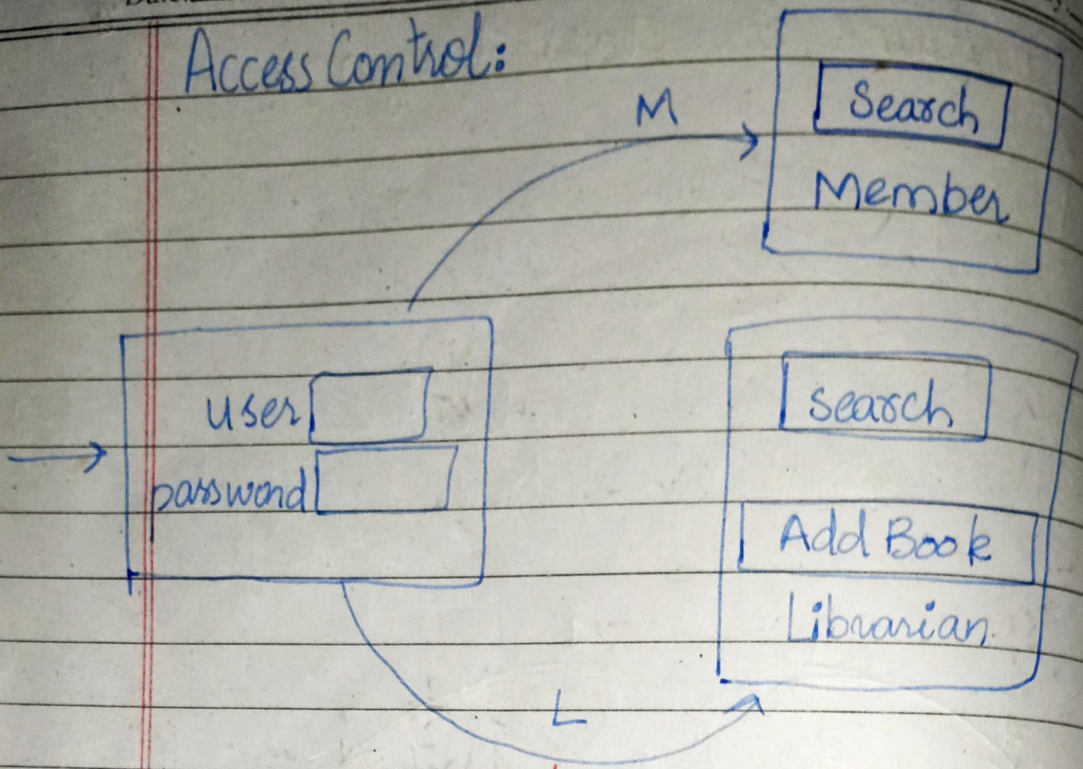 Access Control:
M
Search
Member
user
password
search
Add Book
Librarian
L